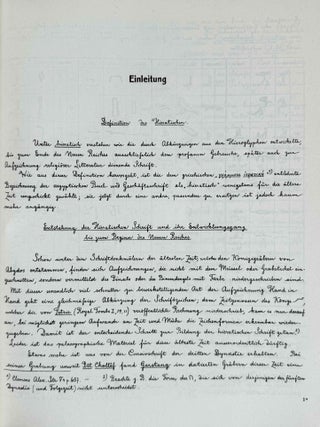 Einleitung
Definition des Hieratischen
Unter hieratisch verstehen wir die durch Abkürzungen aus den Hieroglyphen entwickelte,
bis zum Ende des Neuen Reiches ausschließlich dem profanen Gebrauche, später auch zur
religiöser Litteratur dienende Schrift.
Wie aus dieser Definition hervorgeht, ist die den griechischen, entlehnte
Bezeichnung der ägyptischen Buch- und Geschäftsschrift als „hieratisch" wenigstens für die ältere
Zeit ungeschickt gewählt; sie jetzt durch eine andre, passendere zu ersetzen ist jedoch kaum
mehr angängig.
Entstehung der Hieratischen Schrift und ihr Entwicklungsgang
bis zum Beginn des Neuen Reiches.
Schon unter den Schriftdenkmälern der ältesten Zeit, welche den Königsgräbern von
Abydos entstammen, finden sich Aufzeichnungen, die nicht mit dem Meissel oder Grabstichel ein-
geschnitten, sondern vermittelst des Pinsels oder des Binsen mit Farbe niedergeschrieben sind.
Mit dieser unendlich viel schneller zu bewerkstelligenden Art der Aufzeichnung Hand in
Hand geht eine gleichmäßige Abkürzung der Schriftzeichen; dem Zeitgenossen des Königs
welcher die von Petrie (Royal Tombs I, 19, 11) veröffentlichte niederschrieb, kam es nur darauf
an, bei möglichst geringem Aufwande an Zeit und Mühe die Zeichenformen erkennbar wieder-
zugeben. Damit ist der entscheidende Schritt zur Bildung der hieratischen Schrift getan.
Leider ist das palaeographische Material für diese älteste Zeit ausserordentlich dürftig.
Etwas mehr ist uns von der Cursivschrift der dritten Dynastie erhalten. Bei
seiner Grabung unweit Bet Challâf fand Garstang in datierten Gräbern dieser Zeit eine
1) Clemens Alex. Str. V 2) Beachte z. B. die Form, die sich von derjenigen der fünften
Dynastie (und Folgezeit) nicht unterscheidet.
1*